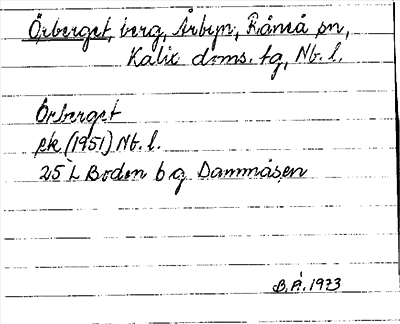 Örberget, berg, Årbyn, Råneå sn,
Kalix doms. tg, Nb. l.
Örberget
ek (1951) Nb. l.
25 L Boden b g Dammåsen
B. Å. 1973